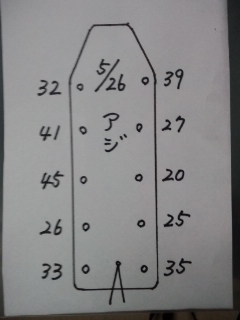 5/26
32 39
アジ
41 27
45 20
26 25
33 35